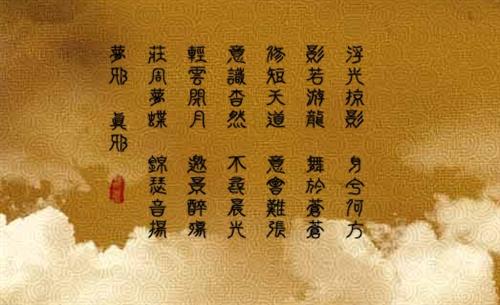 浮光掠影 身兮何方
影若游龍 舞於蒼蒼
脩短天道 意會難張
意識杳然 不尋晨光
輕雲閉月 邀景醉殤
莊周夢蝶 錦瑟音揚
夢邪 真邪